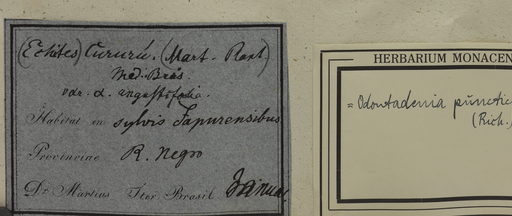 (Echites) Cururú. (Mart. Rant)
Med. Bras
var. α. angustifolia.
Habitat in sylvis Japurensibus
Provinciae R. Negro
Dr. Martius Iter Brasil
HERBARIUM MONACEN
= Odontadenia punctic
(Rich.)